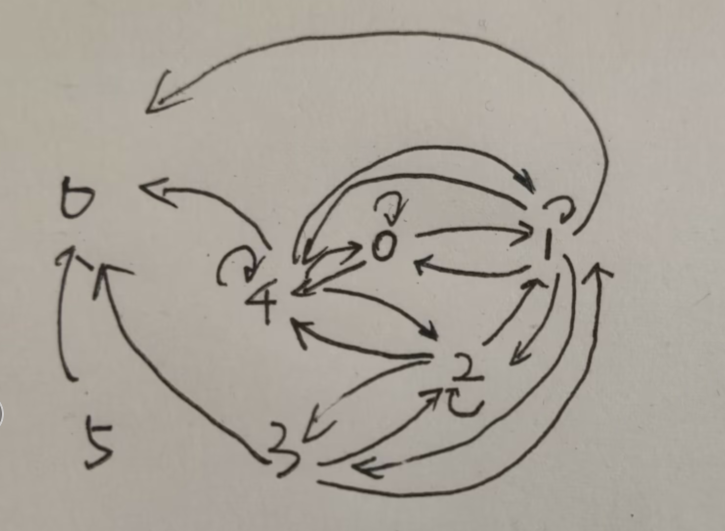 6
0
1
4
2
3
5